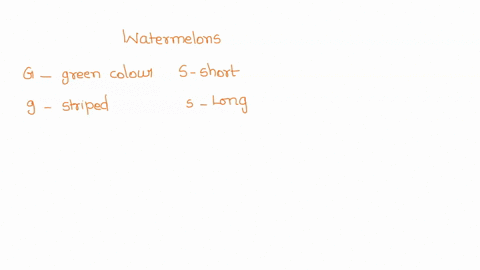 Watermelons
G - green colour S - short
g - striped s - Long